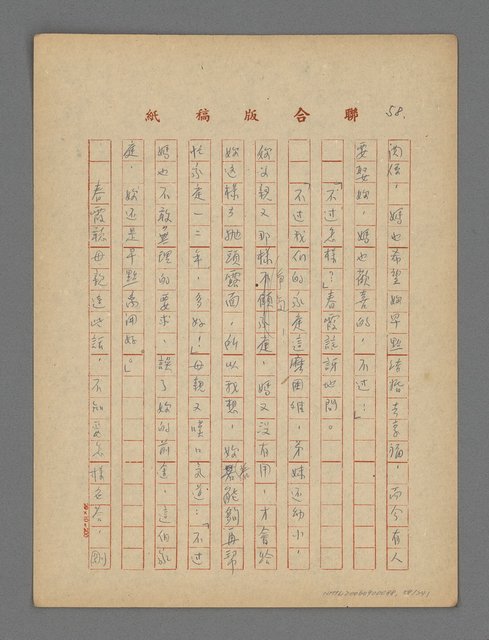 58.
聯合版稿紙
関係，媽也希望妳早點結婚去享福，而今有人
要娶妳，媽也歡喜的，不过…」
「不过怎樣？」春霞詫訝地問。
「不过我们的家庭這麼困難，弟妹还幼小，
你父親又那樣不顧家庭，媽又没有用，才會給
妳這樣了拋頭露面，所以我想，妳若能夠再幫
忙家庭一二年，多好！」母親又嘆口气道：「不过
媽也不敢無理的要求，誤了妳的前途，這個家
庭，妳还是早點离開好。」
春霞聽母親這些話，不知要怎樣回答，剛